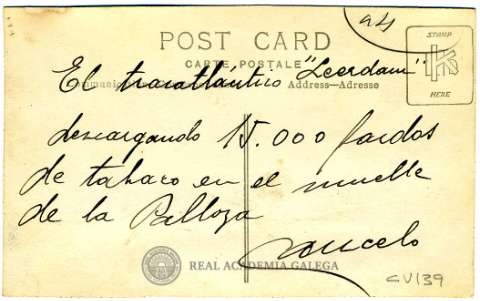 94
POST CARD
STAMP
CARTE POSTALE
El trasatlántico "Leerdam"
Address—Adresse
HERE
descargando 15.000 fardos
de tabaco en el muelle
de la Palloza
REAL ACADEMIA GALEGA
CV139